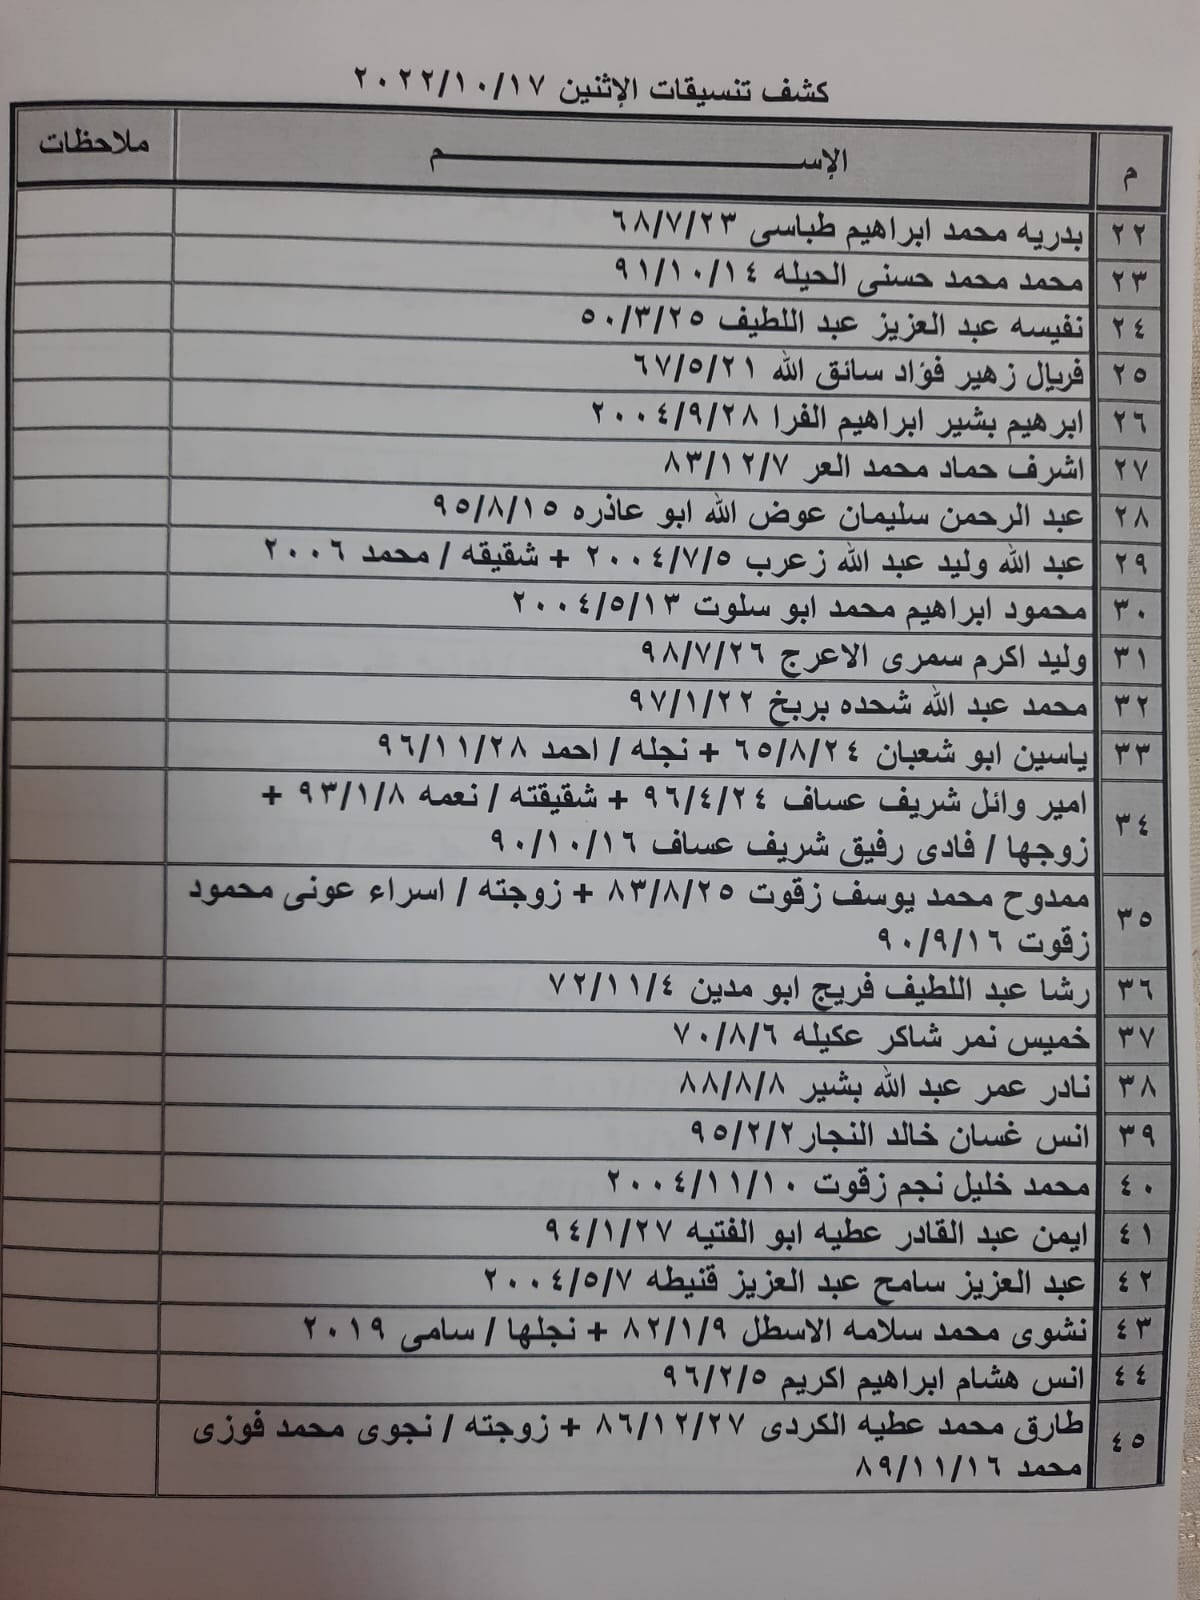 كشف تنسيقات الإثنين ٢٠٢٢/١٠/١٧
م الإســـــــــم ملاحظات
٢٢ بدريه محمد ابراهيم طباسى ٦٨/٧/٢٣
٢٣ محمد محمد حسنى الحيله ٩١/١٠/١٤
٢٤ نفيسه عبد العزيز عبد اللطيف ٥٠/٣/٢٥
٢٥ فريال زهير فؤاد سائق الله ٦٧/٥/٢١
٢٦ ابرهيم بشير ابراهيم الفرا ٢٠٠٤/٩/٢٨
٢٧ اشرف حماد محمد العر ٨٣/١٢/٧
٢٨ عبد الرحمن سليمان عوض الله ابو عاذره ٩٥/٨/١٥
٢٩ عبد الله وليد عبد الله زعرب ٢٠٠٤/٧/٥ + شقيقه / محمد ٢٠٠٦
٣٠ محمود ابراهيم محمد ابو سلوت ٢٠٠٤/٥/١٣
٣١ وليد اكرم سمرى الاعرج ٩٨/٧/٢٦
٣٢ محمد عبد الله شحده بربخ ٩٧/١/٢٢
٣٣ ياسين ابو شعبان ٦٥/٨/٢٤ + نجله / احمد ٩٦/١١/٢٨
٣٤ امير وائل شريف عساف ٩٦/٤/٢٤ + شقيقته / نعمه ٩٣/١/٨ +
زوجها / فادى رفيق شريف عساف ٩٠/١٠/١٦
٣٥ ممدوح محمد يوسف زقوت ٨٣/٨/٢٥ + زوجته / اسراء عونى محمود
زقوت ٩٠/٩/١٦
٣٦ رشا عبد اللطيف فريج ابو مدين ٧٢/١١/٤
٣٧ خميس نمر شاكر عكيله ٧٠/٨/٦
٣٨ نادر عمر عبد الله بشير ٨٨/٨/٨
٣٩ انس غسان خالد النجار ٩٥/٢/٢
٤٠ محمد خليل نجم زقوت ٢٠٠٤/١١/١٠
٤١ ايمن عبد القادر عطيه ابو الفتيه ٩٤/١/٢٧
٤٢ عبد العزيز سامح عبد العزيز قنيطه ٢٠٠٤/٥/٧
٤٣ نشوى محمد سلامه الاسطل ٨٢/١/٩ + نجلها / سامى ٢٠١٩
٤٤ انس هشام ابراهيم اكريم ٩٦/٢/٥
٤٥ طارق محمد عطيه الكردى ٨٦/١٢/٢٧ + زوجته / نجوى محمد فوزى
محمد ٨٩/١١/١٦